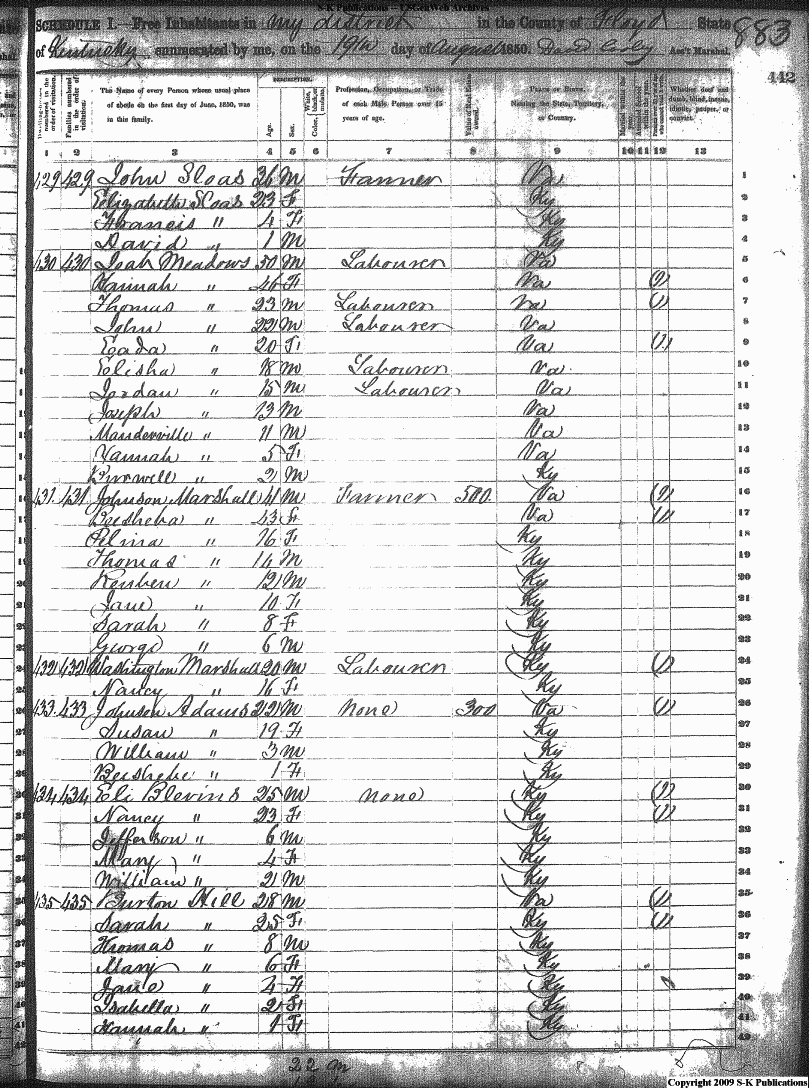 S-K Publications - USGenWeb Archives
SCHEDULE I.—Free Inhabitants in My district in the County of Floyd State
of Kentucky enumerated by me, on the 19th day of August 1850. Ass't Marshal.
883
442
DESCRIPTION.
Dwelling-houses numbered in the order of visitation.
Families numbered in the order of visitation.
The Name of every Person whose usual place of abode on the first day of June, 1850, was in this family.
Age.
Sex.
White, black, or mulatto.
Color,
Profession, Occupation, or Trade of each Male Person over 15 years of age.
Value of Real Estate owned.
Place of Birth. Naming the State, Territory, or Country.
Married within the year.
Whether deaf and dumb, blind, insane, idiotic, pauper, or convict.
1 2 3 4 5 6 7 8 9 10 11 12 13
429 429 John Sloas 36 M Farmer Va 1
Elizabeth Sloas 23 F Ky 2
Francis " 4 F Ky 3
David " 1 M Ky 4
430 430 Isah Meadows 50 M Labourer Va 5
Hannah " 46 F Va (1) 6
Thomas " 23 M Labourer Va (1) 7
John " 22 M Labourer Va 8
Eada " 20 F Va (1) 9
Elisha " 18 M Labourer Va 10
Jordan " 15 M Labourer Va 11
Joseph " 13 M Va 12
Mandervville " 11 M Va 13
Hannah " 5 F Va 14
Burwell " 2 M Ky 15
431 431 Johnson Marshall 41 M Farmer 500 Va (1) 16
Beersheba " 43 F Va (1) 17
" 16 F Ky 18
Thomas " 14 M Ky 19
Reuben " 12 M Ky 20
Jane " 10 F Ky 21
Sarah " 8 F Ky 22
George " 6 M Ky 23
432 432 Washington Marshall 20 M Labourer Ky (1) 24
Nancy " 16 F Ky 25
433 433 Johnson Adams 22 M None 300 Va (1) 26
Susan " 19 F Ky 27
William " 3 M Ky 28
Beershebe " 1 F Ky 29
434 434 Eli Blevins 25 M None Ky (1) 30
Nancy " 23 F Ky (1) 31
Jefferson " 6 M Ky 32
Mary " 4 F Ky 33
William " 2 M Ky 34
435 435 Burton Hill 28 M Va (1) 35
Sarah " 25 F Ky (1) 36
Thomas " 8 M Ky 37
Mary " 6 F Ky 38
Jane " 4 F Ky 39
Isabella " 2 F Ky 40
Hannah " 1 F Ky 41
42
22 M
Copyright 2009 S-K Publications